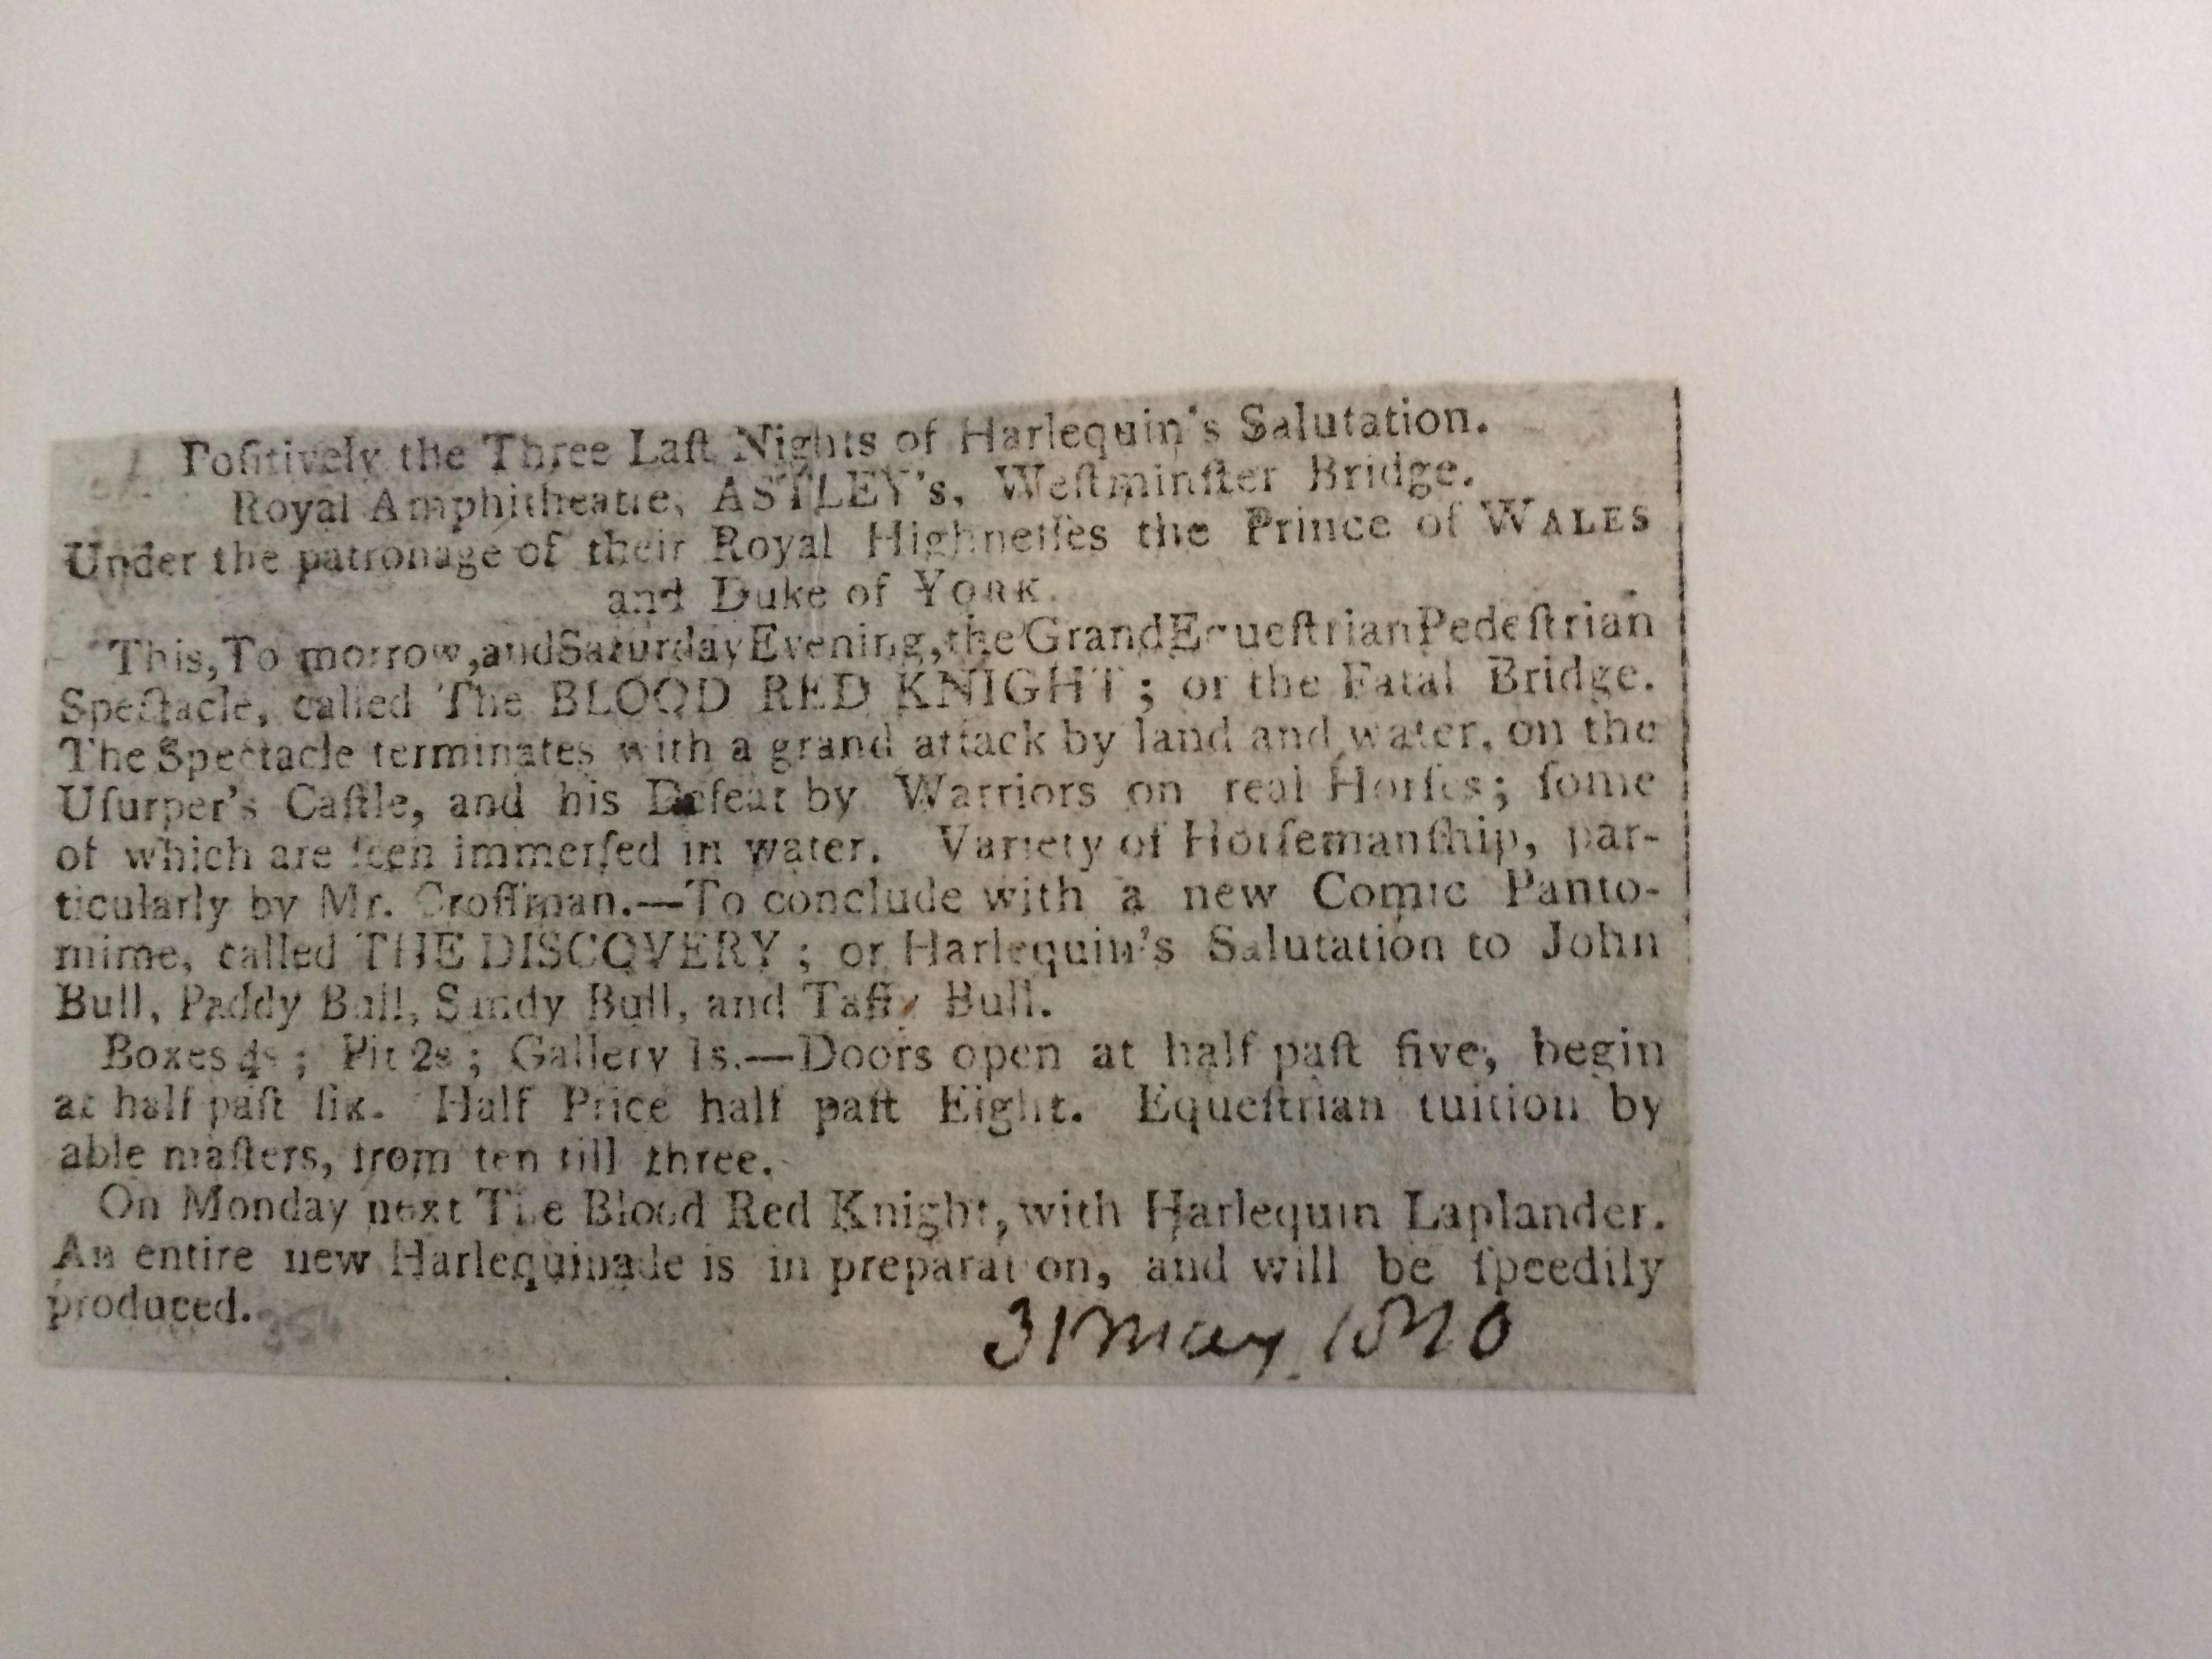 Poſitively the Three Laſt Nights of Harlequin's Salutation.
Royal Amphitheatre, ASTLEY's, Weſtminſter Bridge.
Under the patronage of their Royal Highneſſes the Prince of WALES
and Duke of YORK.
This, To morrow, and Saturday Evening, the Grand Equeſtrian Pedeſtrian
Spectacle, called The BLOOD RED KNIGHT; or the Fatal Bridge.
The Spectacle terminates with a grand attack by land and water, on the
Uſurper's Caſtle, and his Defeat by Warriors on real Horſes; ſome
of which are ſeen immerſed in water. Variety of Horſemanſhip, par-
ticularly by Mr. Croſſman.—To conclude with a new Comic Panto-
mime, called THE DISCOVERY; or Harlequin's Salutation to John
Bull, Paddy Bull, Sandy Bull, and Taffy Bull.
Boxes 4s; Pit 2s; Gallery 1s.—Doors open at half paſt five, begin
at half paſt ſix. Half Price half paſt Eight. Equeſtrian tuition by
able maſters, from ten till three.
On Monday next The Blood Red Knight, with Harlequin Laplander.
An entire new Harlequinade is in preparation, and will be ſpeedily
produced.
31 May